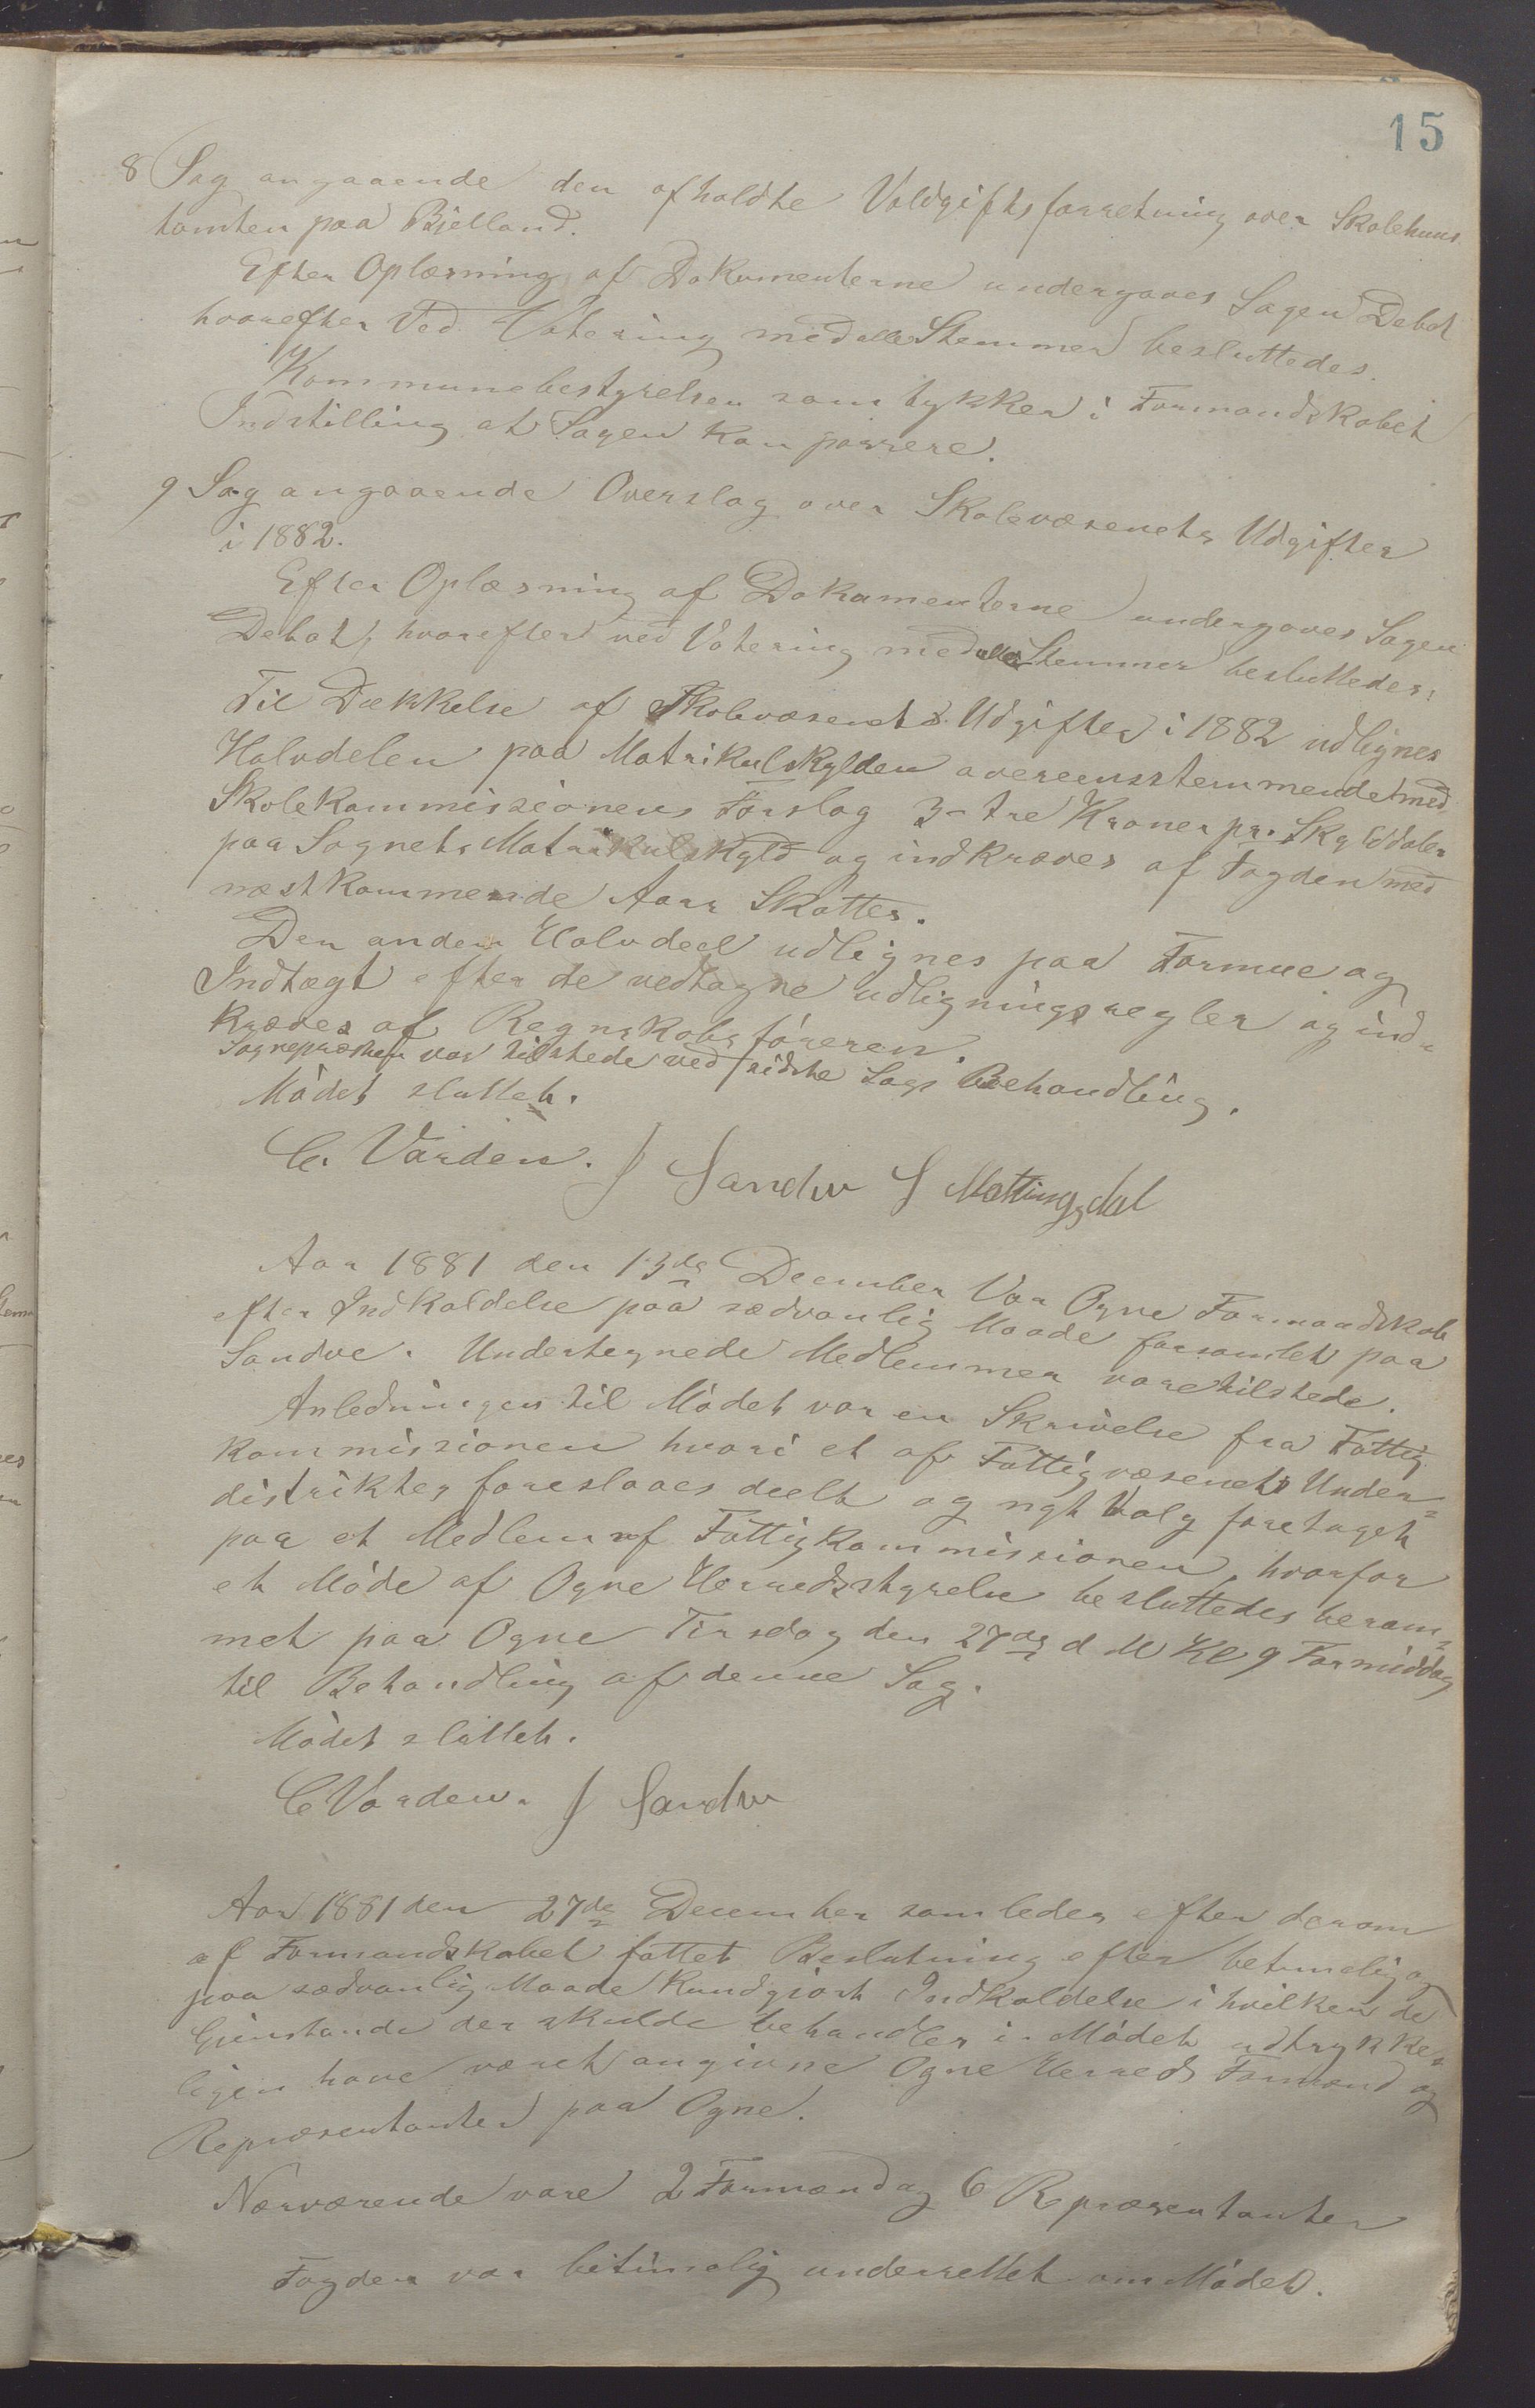 15
8 Sag angaaende den afholdte Voldgiftsforretning over Skolehuus
tomten paa Bjelland.
Efter Oplæsning af Dokumenterne undergaves Sagen Debat
hvorefter Ved Votering med alle Stemmer besluttedes.
Kommunebestyrelsen samtykker i Formandskabet
Indstilling at Sagen kan passere.
9 Sag angaaende Overslag over Skolevæsenets Udgifter
i 1882.
Efter Oplæsning af Dokumenterne undergaves Sagen
Debat, hvorefter ved Votering med alle Stemmer besluttedes:
Til Dækkelse af Skolevæsenets Udgifter i 1882 udlignes
Halvdelen paa Matrikulskylden overeensstemmende med
Skolekommissionens Forslag 3- tre Kroner pr. Skylddaler
paa Sognets Matrikulskyld og indkræves af Fogden med
næstkommende Aars Skatter.
Den anden Halvdeel udlignes paa Formue og
Indtægt efter de vedtagne udligningsregler og ind-
kræves af Regnskabsføreren.
Sognepresten var tilstede ved sidste Sags Behandling.
Mødet sluttet.
C. Varden. J Sandve S Mattingsdal
Aar 1881 den 13de December Var Ogne Formandskab
efter Indkaldelse paa sædvanlig Maade forsamlet paa
Sandve. Undertegnede Medlemmer vare tilstede.
Anledningen til Mødet var en Skrivelse fra Fattig
kommissionen hvori et af Fattigvæsenets Under-
distrikter foreslaaes deelt og nyt Valg foretaget
paa et Medlem af Fattigkommissionen, hvorfor
et Møde af Ogne Herredsstyrelse besluttedes beram-
met paa Ogne Tirsdag den 27de d M Kl 9 Formiddag
til Behandling af denne Sag.
Mødet sluttet.
C Varden. J Sandve
Aar 1881 den 27de December samledes efter derom
af Formandskabet fattet Beslutning efter betimelig og
paa sædvanlig Maade Kundgjort Indkaldelse i hvilken de
Gjenstande der skulde behandles i Mødet udtrykke-
ligen have været angivne Ogne Herreds Formænd og
Repræsentanter paa Ogne.
Nærværende vare 2 Formænd og 6 Repræsentanter
Fogden var betimelig underrettet om Mødet.